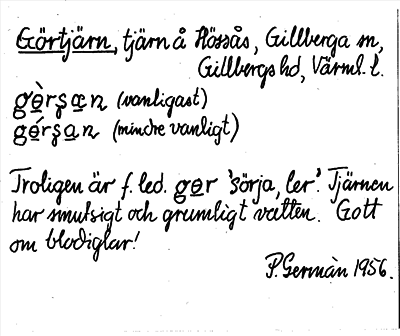 Görtjärn, tjärn å Hössås, Gillberga sn,
Gillbergs hd, Värml. l.
gɵ̀rʂa̲n (vanligast)
gɵ́rʂa̲n (mindre vanligt)
Troligen är f. led. gɵr 'sörja, ler'. Tjärnen
har smutsigt och grumligt vatten. Gott
om blodiglar!
P. Germàn 1956.